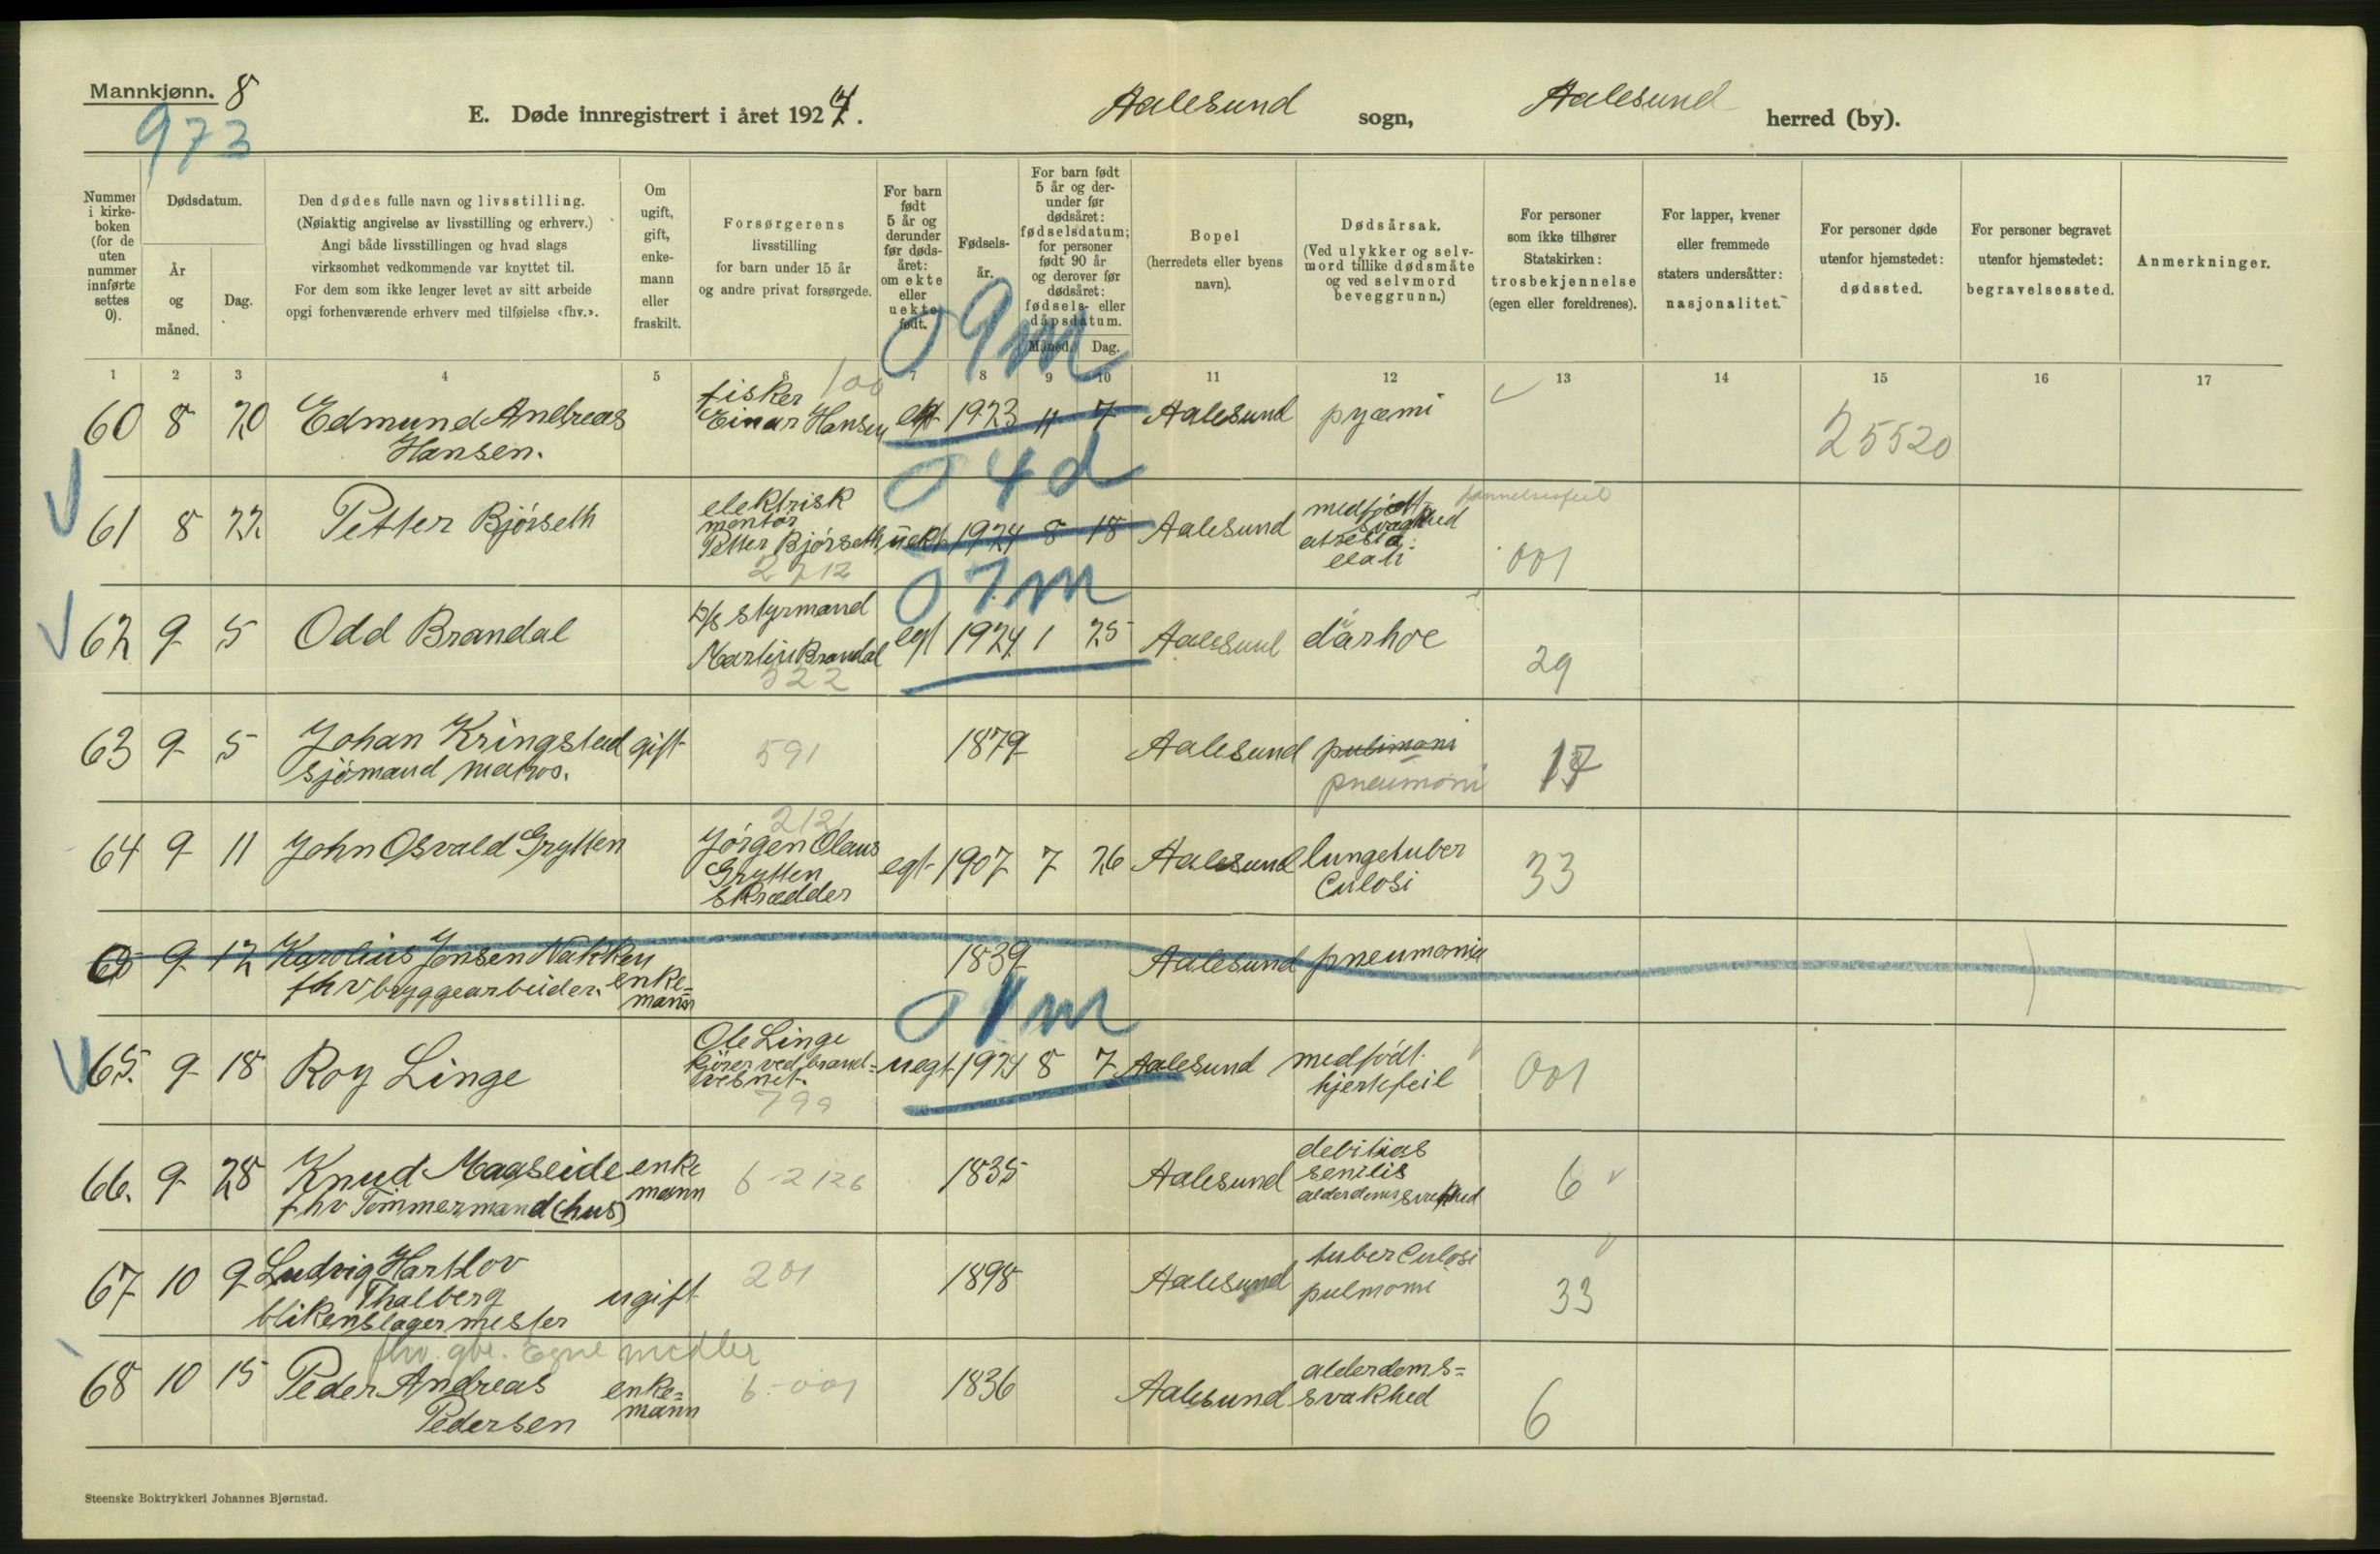 Mannkjønn. 8
973
E. Døde innregistrert i året 1924. Aalesund sogn, Aalesund herred (by).
Nummer i kirkeboken (for de uten nummer innførte settes 0).
Dødsdatum.
År og måned.
Dag.
Den dødes fulle navn og livsstilling.
(Nøiaktig angivelse av livsstilling og erhverv.)
Angi både livsstillingen og hvad slags
virksomhet vedkommende var knyttet til.
For dem som ikke lenger levet av sitt arbeide
opgi forhenværende erhverv med tilføielse «fhv.».
Om ugift, gift, enkemann eller fraskilt.
Forsørgerens
livsstilling
for barn under 15 år
og andre privat forsørgede.
For barn født 5 år og derunder før dødsåret: om ekte eller uekte født.
Fødselsår.
For barn født 5 år og derunder før dødsåret: fødselsdatum; for personer født 90 år og derover før dødsåret: fødsels- eller dåpsdatum.
Måned. Dag.
Bopel
(herredets eller byens
navn).
Dødsårsak.
(Ved ulykker og selvmord tillike dødsmåte og ved selvmord beveggrunn.)
For personer
som ikke tilhører
Statskirken:
trosbekjennelse
(egen eller foreldrenes).
For lapper, kvener
eller fremmede
staters undersåtter:
nasjonalitet.
For personer døde
utenfor hjemstedet:
dødssted.
For personer begravet
utenfor hjemstedet:
begravelsessted.
Anmerkninger.
1 2 3 4 5 6 7 8 9 10 11 12 13 14 15 16 17
0 9 m
fisker 100
60 8 20 Edmund Andreas Einar Hansen ekt 1923 11 7 Aalesund pyæmi
Hansen. 25520
0 4 d
elektrisk
61 8 22 Petter Bjórseth montør Petter Bjórseth uekt 1924 8 18 Aalesund medfødt svaghed
2212 001
0 7 m
62 9 5 Odd Brandal styrmand egt 1924 1 25 Aalesund diarhoe
Martin Brandal
522 29
63 9 5 Johan Kringstad gift 591 1879 Aalesund pulimoni
sjómand matros. pneumoni 17
2121
64 9 11 John Osvald Grytten Jórgen Olaus egt 1907 7 26 Aalesund lungetuber
Grytten culosi 33
skrædder
65 9 12 Karolius Jensen Nakken 1839 Aalesund pneumonia
fhv bryggearbeider. enke=
mann
0 1 m
Ole Linge
65. 9 18 Roy Linge kjører ved brand= uegt 1924 8 7 Aalesund medfódt
vesnet. hjertefeil 001
799
66. 9 28 Knud Maaseide enke 6-2126 1835 Aalesund debilitas
fhv Tømmermand (hus) mann senilis
alderdomssvakhed 6
67 10 9 Ludvig Hartlov 201 1898 Aalesund tuberculosi
Thalberg ugift pulmomi 33
blikenslagermester
fhv. gbr. Egne midler
68 10 15 Peder Andreas enke= 6-001 1836 Aalesund alderdoms=
Pedersen mann svakhed 6
Steenske Boktrykkeri Johannes Bjørnstad.